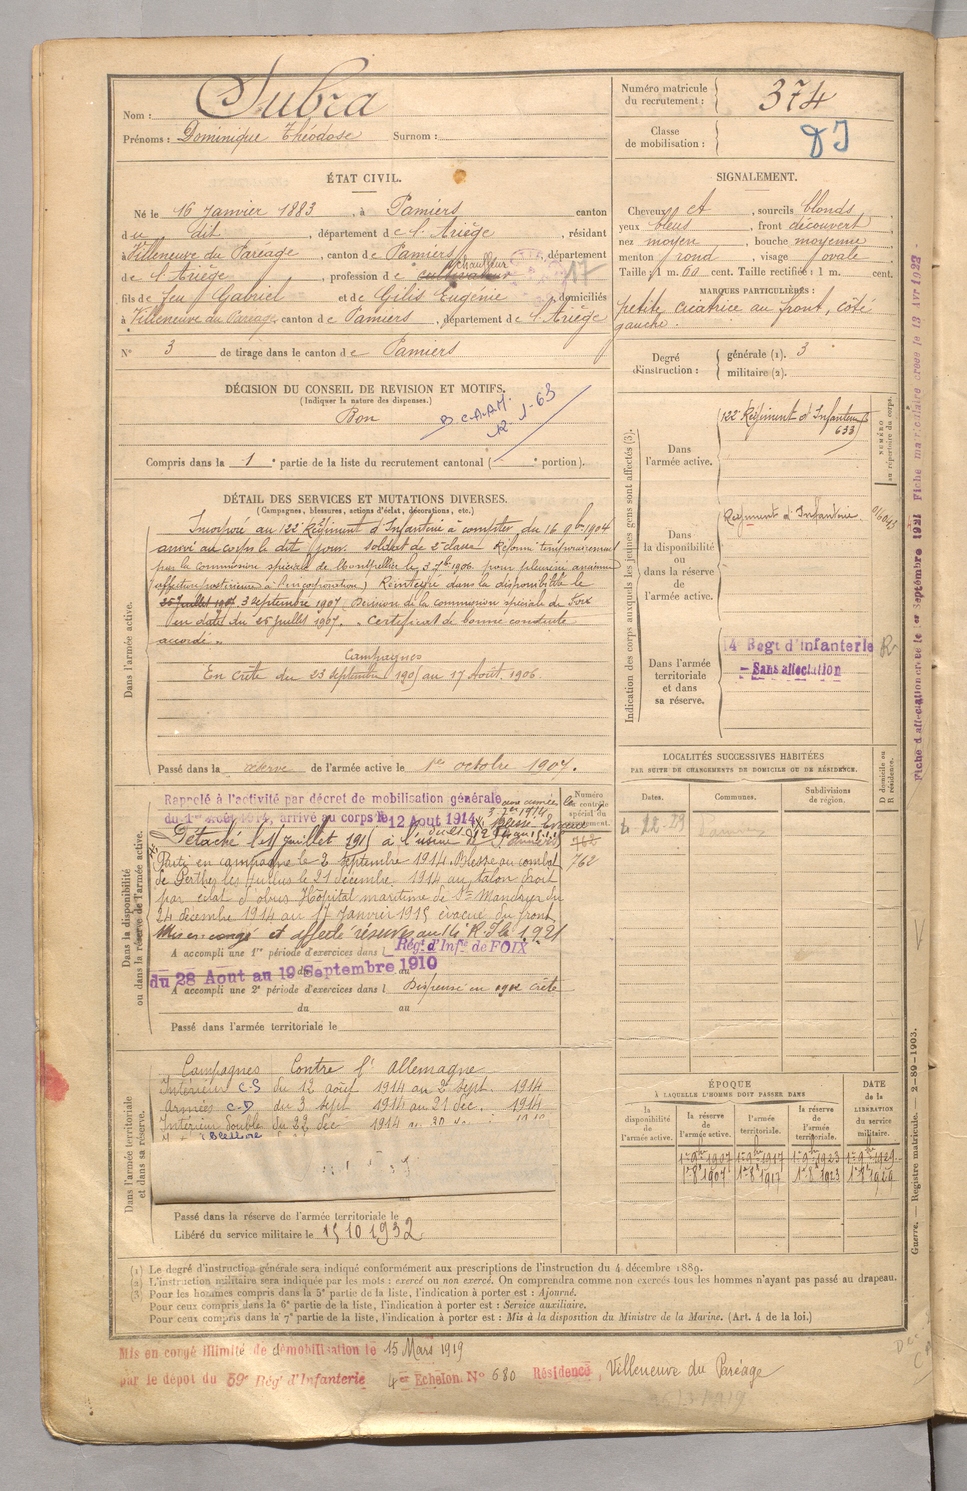 Nom : Subra
Prénoms : Dominique Théodose Surnom :
Numéro matricule du recrutement : 374
Classe de mobilisation :
ÉTAT CIVIL.
Né le 16 Janvier 1883, à Pamiers canton
du dit, département de l'Ariège, résidant
à Villeneuve du Paréage, canton de Pamiers, département
de l'Ariège, profession de cultivateur chauffeur
17
fils de feu Gabriel et de Gilis Eugénie, domiciliés
à Villeneuve du Paréage, canton de Pamiers, département de l'Ariège
N° 3 de tirage dans le canton de Pamiers
SIGNALEMENT.
Cheveux et, sourcils blonds,
yeux bleus, front découvert,
nez moyen, bouche moyenne,
menton rond, visage ovale.
Taille : 1 m. 60 cent. Taille rectifiée : 1 m. cent.
MARQUES PARTICULIÈRES :
petite cicatrice au front, côté
gauche.
Degré d'instruction : générale (1). 3
militaire (2).
DÉCISION DU CONSEIL DE REVISION ET MOTIFS.
(Indiquer la nature des dispenses.)
Bon
B.C.A.A.M.
12-1-63
Compris dans la 1e partie de la liste du recrutement cantonal ( e portion).
DÉTAIL DES SERVICES ET MUTATIONS DIVERSES.
(Campagnes, blessures, actions d'éclat, décorations, etc.)
Dans l'armée active.
Incorporé au 122e Régiment d'Infanterie à compter du 16 9bre 1904
arrivé au corps le dit jour. soldat de 2e classe. Réformé temporairement
par la commission spéciale de Montpellier le 3 7bre 1906. pour
(affection postérieure à l'incorporation) Réintégré dans la disponibilité le
25 juillet 1907 3 septembre 1907. Décision de la commission spéciale de Foix
en date du 25 juillet 1907. Certificat de bonne conduite
accordé.
Campagnes
En Crète du 23 septembre 1905 au 17 Août 1906.
Passé dans la réserve de l'armée active le 1er octobre 1907.
Indication des corps auxquels les jeunes gens sont affectés (3).
NUMÉRO au répertoire du corps.
Dans l'armée active.
122e Régiment d'Infanterie
633
Dans la disponibilité ou dans la réserve de l'armée active.
Régiment d'Infanterie
Dans l'armée territoriale et dans sa réserve.
14 Regt d'Infanterie
R
Sans affectation
Fiche d'affectation créée le 1er Septembre 1921 Fiche matriculaire créée le 13 Avr 1922
LOCALITÉS SUCCESSIVES HABITÉES
PAR SUITE DE CHANGEMENTS DE DOMICILE OU DE RÉSIDENCE.
D domicile ou R résidence.
Dates. Communes. Subdivisions de région.
Dans la disponibilité ou dans la réserve de l'armée active.
Numéro
Rappelé à l'activité par décret de mobilisation générale
du 1er Août 1914, arrivé au corps le 12 Aout 1914.
Détaché le 1er juillet 1915 à l'usine de Pamiers
Parti en campagne le 2 septembre 1914. Blessé au combat
762
de Perthes les Hurlus le 21 décembre 1914 au talon droit
par éclat d'obus Hôpital maritime de St Mandrier du
24 décembre 1914 au 17 Janvier 1915 évacué du front
Mis en congé et affecté réserves au 14e R.I le 1.9.21
A accompli une 1re période d'exercices dans l Régt d'Infie de FOIX
du 28 Aout au 19 Septembre 1910
A accompli une 2e période d'exercices dans l Dispensé en 1912 Crète
du au
Passé dans l'armée territoriale le
Dans l'armée territoriale et dans sa réserve.
Campagnes Contre l'Allemagne
Intérieur C.S du 12 août 1914 au 2 sept. 1914
Armées C.D du 3 sept 1914 au 21 dec. 1914
Intérieur double du 22 dec 1914 au
Blessure
Passé dans la réserve de l'armée territoriale le
Libéré du service militaire le 15 10 1932
ÉPOQUE
À LAQUELLE L'HOMME DOIT PASSER DANS
DATE de la LIBÉRATION du service militaire.
la disponibilité de l'armée active. la réserve de l'armée active. l'armée territoriale. la réserve de l'armée territoriale.
1er 9bre 1907 1er 9bre 1917 1er 9bre 1923 1er 9bre 1929
1er 8bre 1907 1er 8bre 1917 1er 8bre 1923 1er 8bre 1929
Guerre. — Registre matricule. — 2-89-1903.
(1) Le degré d'instruction générale sera indiqué conformément aux prescriptions de l'instruction du 4 décembre 1889.
(2) L'instruction militaire sera indiquée par les mots : exercé ou non exercé. On comprendra comme non exercés tous les hommes n'ayant pas passé au drapeau.
(3) Pour les hommes compris dans la 5e partie de la liste, l'indication à porter est : Ajourné.
Pour ceux compris dans la 6e partie de la liste, l'indication à porter est : Service auxiliaire.
Pour ceux compris dans la 7e partie de la liste, l'indication à porter est : Mis à la disposition du Ministre de la Marine. (Art. 4 de la loi.)
Mis en congé illimité de démobilisation le 15 Mars 1919
par le dépot du 59e Rég' d'Infanterie 4me Echelon N° 680 Résidence, Villeneuve du Paréage